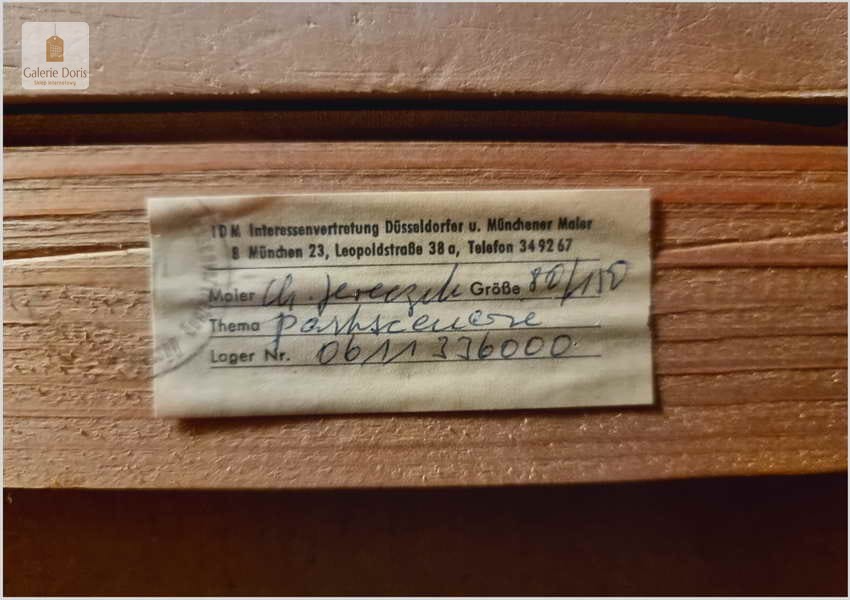 Galerie Doris
IDM Interessenvertretung Düsseldorfer u. Münchener Maler
8 München 23, Leopoldstraße 38a, Telefon 349267
Maler Ch. Jereczek Größe 80/150
Thema Parkscenerie
Lager Nr. 0611336000